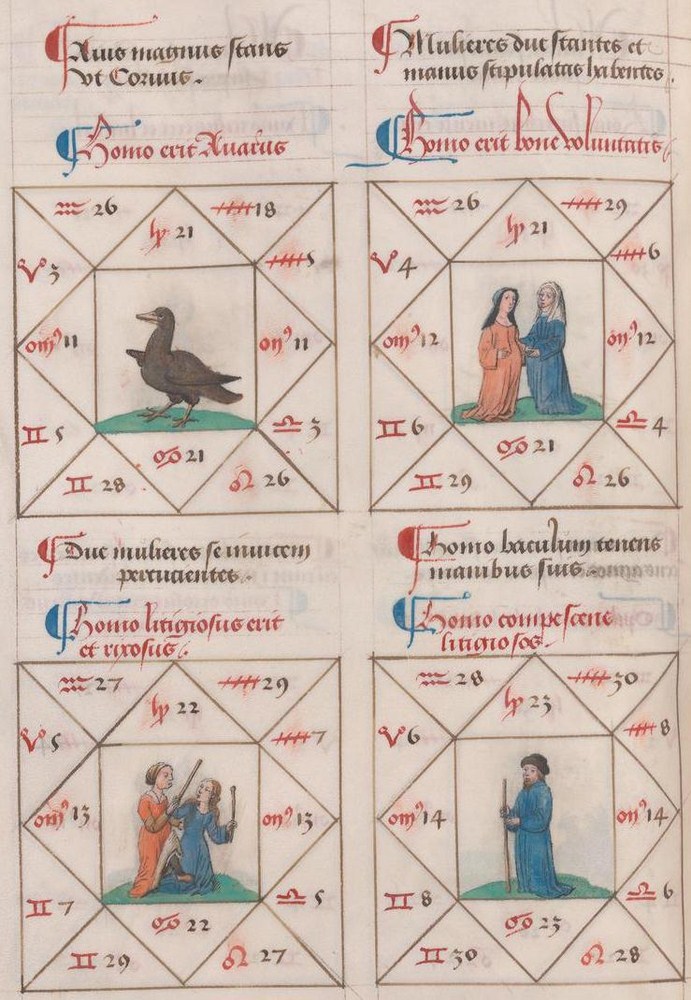 Auis magnus stans
vt Coruus.
Homo erit Auarus
♒ 26
♑ 21
18
♈ 3
5
11
11
♊ 5
♎ 3
♋ 21
♊ 28
♌ 26
Mulieres due stantes et
manus stipulatas habentes.
Homo erit bone voluntatis
♒ 26
♑ 21
29
♈ 4
6
12
12
♊ 6
♎ 4
♋ 21
♊ 29
♌ 26
Due mulieres se inuicem
percucientes.
Homo litigiosus erit
et rixosus.
♒ 27
♑ 22
29
♈ 5
7
13
13
♊ 7
♎ 5
♋ 22
♊ 29
♌ 27
Homo baculum tenens
manibus suis.
Homo compescens
litigiosos.
♒ 28
♑ 23
30
♈ 6
8
14
14
♊ 8
♎ 6
♋ 23
♊ 30
♌ 28